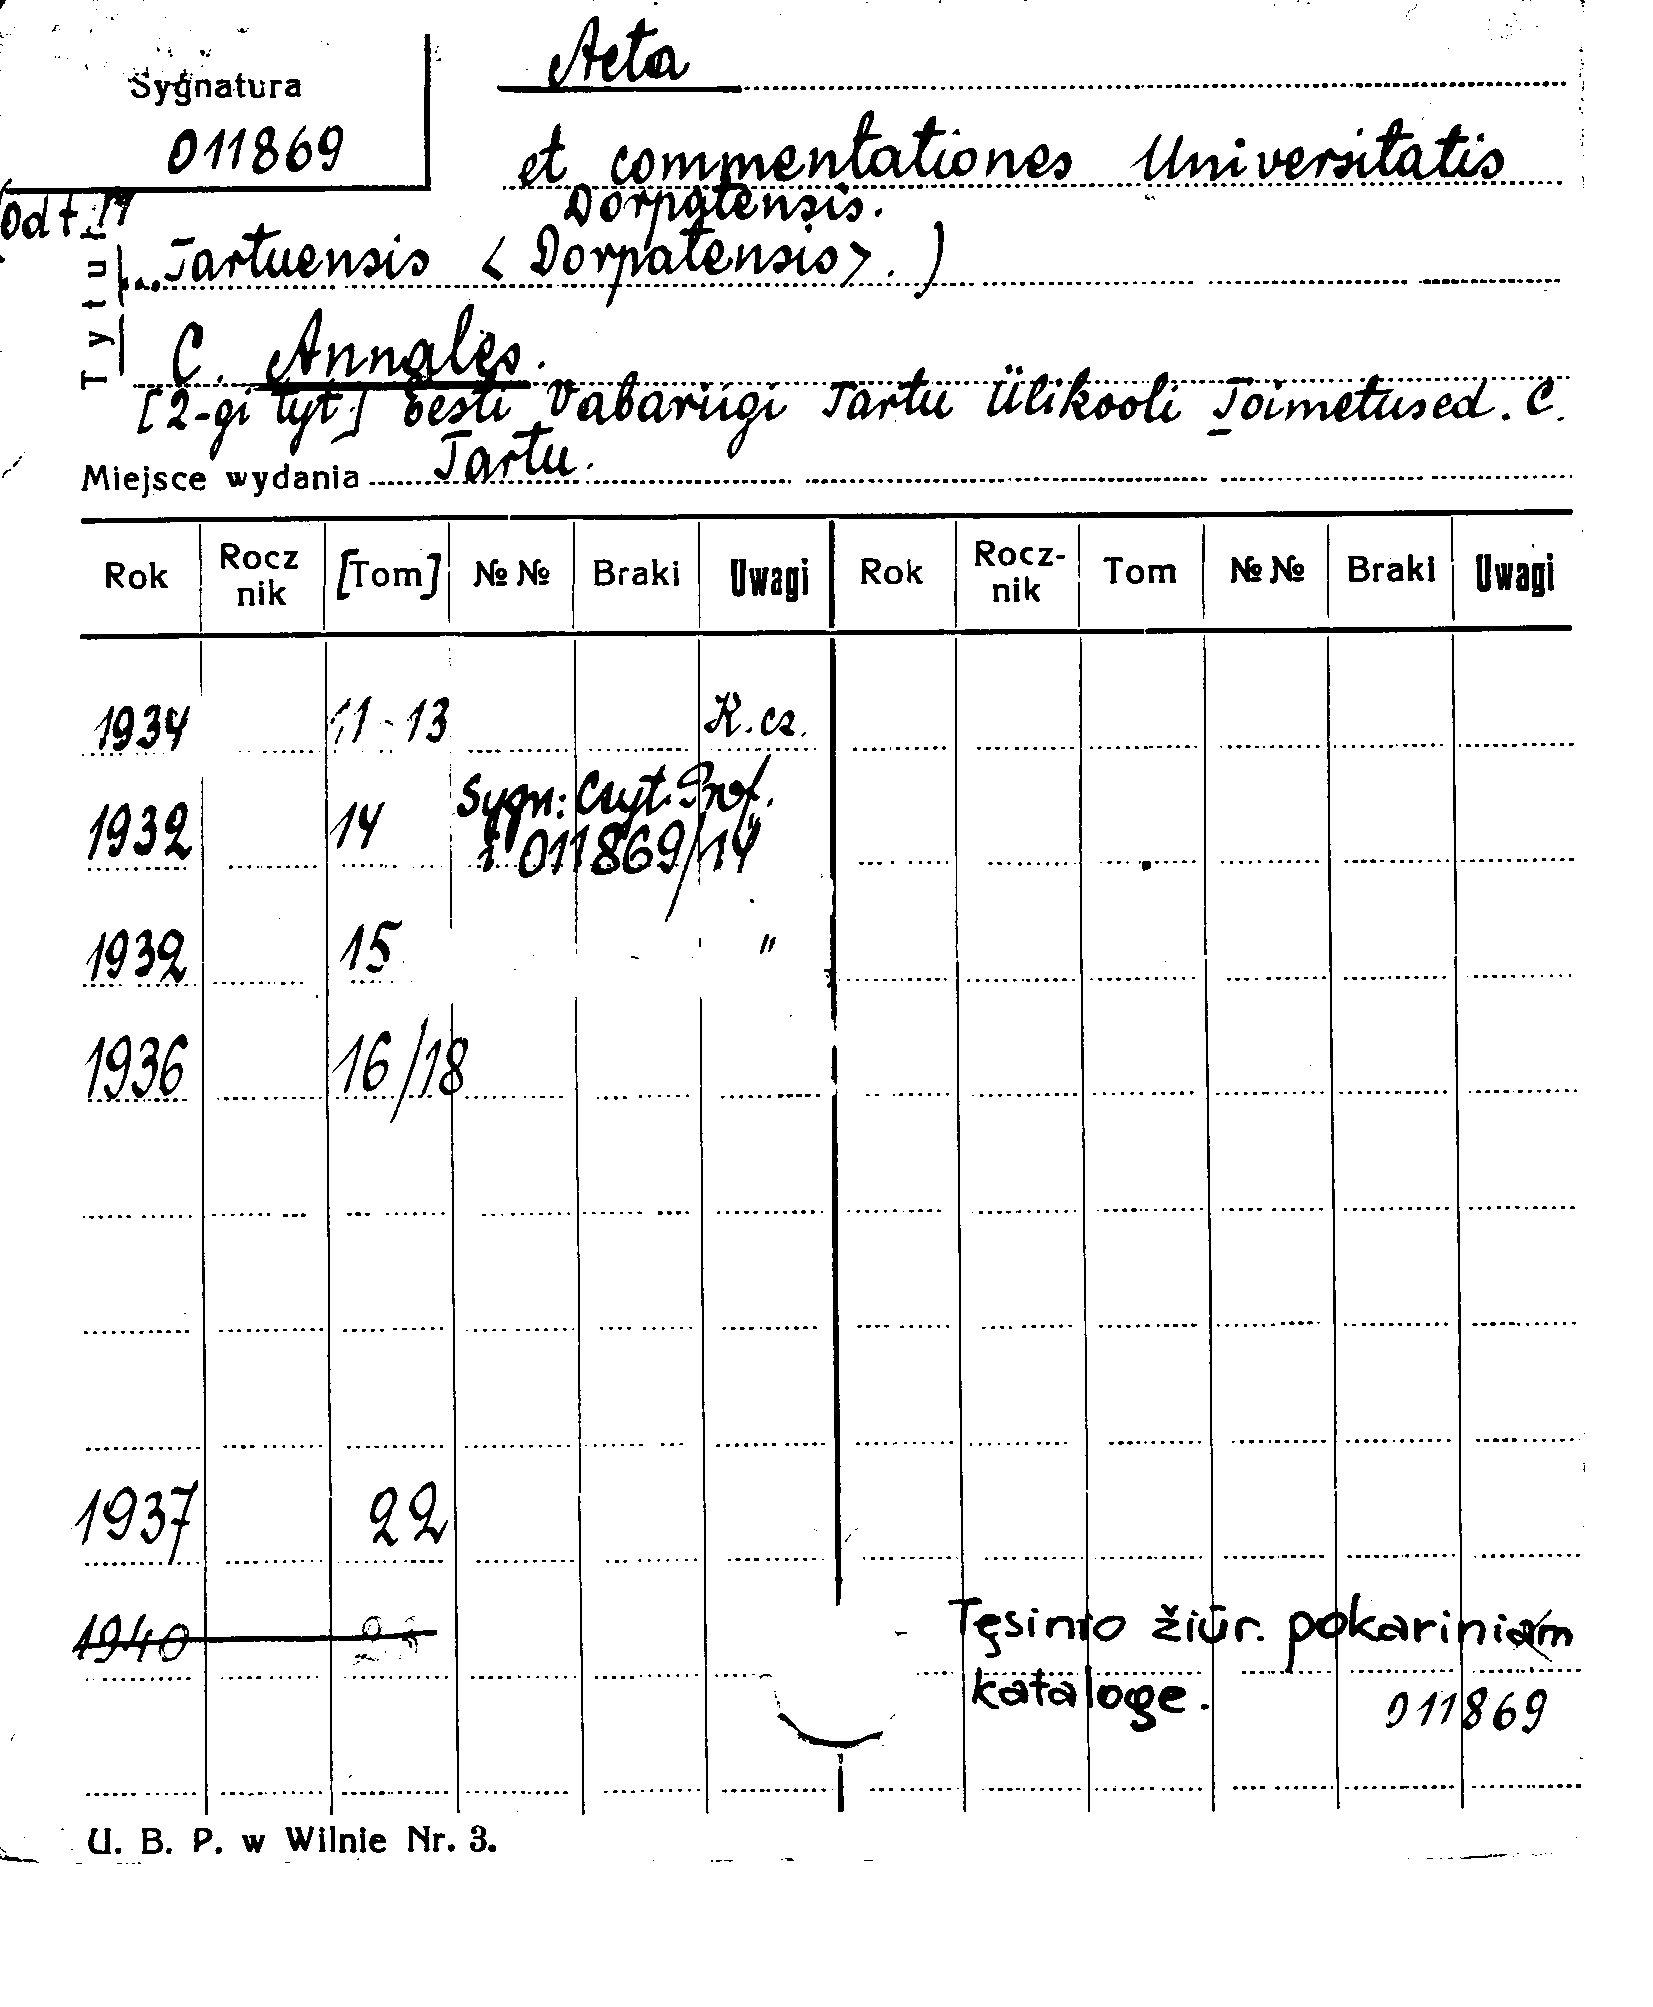 Sygnatura
011869
Acta
et commentationes Universitatis
Dorpatensis.
(od t. 14
Tartuensis < Dorpatensis > . )
Tytuł
C. Annales.
[2-gi tyt.] Eesti Vabariigi Tartu Ülikooli Toimetused. C.
Miejsce wydania Tartu.
Rok Rocz nik [Tom] № № Braki Uwagi Rok Rocz- nik Tom № № Braki Uwagi
1934 11 - 13 K. cz.
1932 14 Sygn: Czyt. Prof.
i 011869/14
1932 15 "
1936 16/18
1937 22
1940
Tęsinio žiūr. pokariniam
kataloge. 011869
U. B. P. w Wilnie Nr. 3.